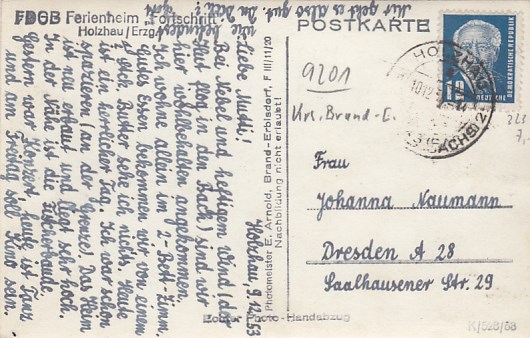 FDGB Ferienheim "Fortschritt"
Holzhau / Erzg.
POSTKARTE
Mir geht es also gut. Im Dett?
wie befindest
Holzhau, 9.12.53
Liebe Mutti!
Bei Nebel und heftigem Wind (der
Hut flog in den Bach) sind wir
hier wohlbehalten angekommen.
Ich wohne allein im 2-Bett-Zimm.
Gutes Essen bekommen wir von einem
Koch, Butter sehe ich nichts. Heute
ist ein herrlicher Tag. Ich war schon
spazieren (an der Grenze). Das Heim
ist neu erbaut und liegt sehr hoch.
In der Nähe ist die Fischerbaude.
Gestern war Konzert, heute ist Tanz
und am Freitag soll Kino sein.
Photomeister E. Arnold, Brand-Erbisdorf, F III/11/20
Nachbildung nicht erlaubt!
Echter Photo-Handabzug
9201
Krs. Brand-E.
DEUTSCHE
DEMOKRATISCHE REPUBLIK
HOLZHAU
10.12
SACHS) 2
Frau
Johanna Naumann
Dresden A 28
Saalhausener Str. 29
K/528/53